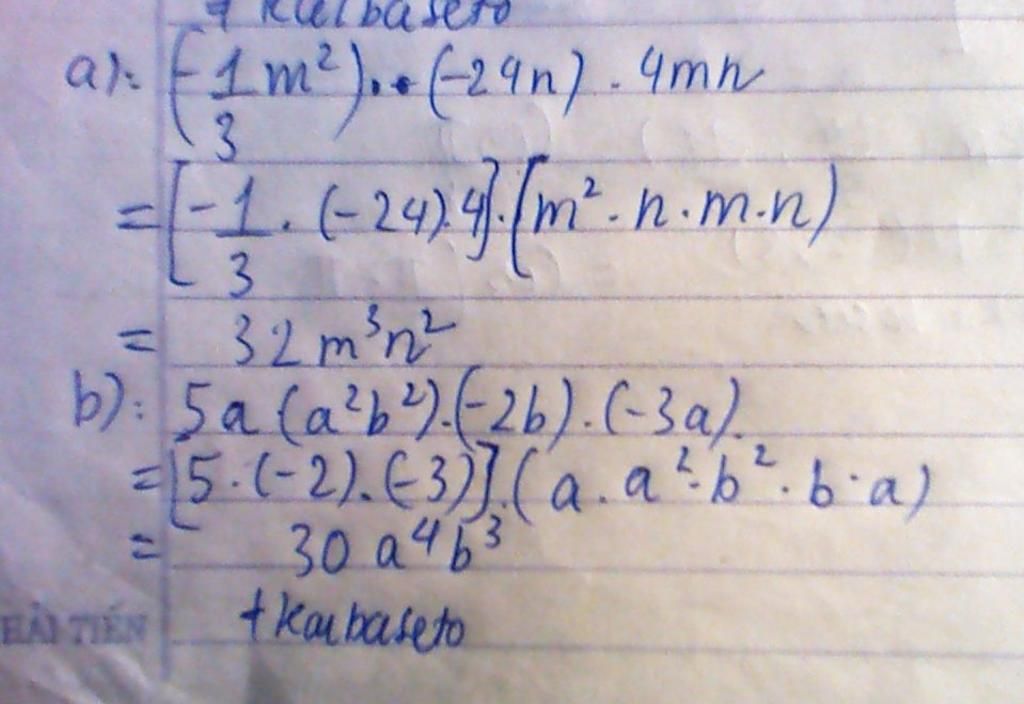 + kaibaseto
a): (-1/3 m²) . (-24n) . 4mn
= [-1/3 . (-24) . 4] . [m² . n . m . n)
= 32 m³n²
b): 5a (a²b²) . (-2b) . (-3a)
= [5 . (-2) . (-3)] . (a . a² . b² . b . a)
= 30 a⁴b³
HẢI TIẾN + kaibaseto